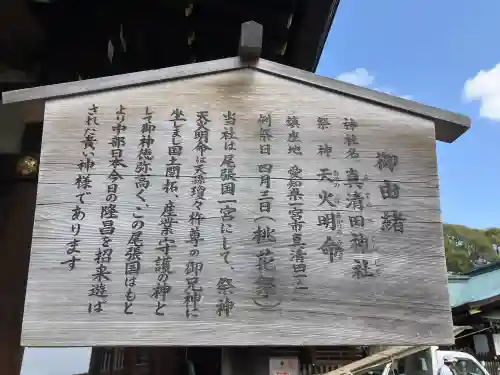 御由緒
神社名 真清田神社
祭神 天火明命
鎮座地 愛知県一宮市真清田一ノ一
例祭日 四月三日(桃花祭)
当社は尾張国一宮にして、祭神
天火明命は天孫瓊々杵尊の御兄神に
坐しまし国土開拓、産業守護の神と
して御神徳弥高く、この尾張国はもと
より中部日本今日の隆昌を招来遊ば
された貴い神様であります